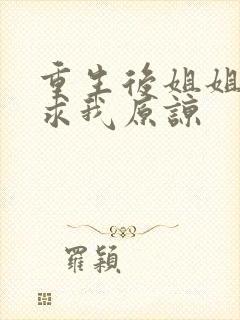 重生後姐姐
求我原諒
羅穎